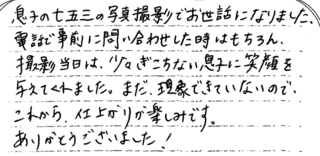 息子の七五三の写真撮影でお世話になりました。
電話で事前に問い合わせした時はもちろん、
撮影当日は、少々ぎこちない息子に笑顔を
与えてくれました。まだ、現像できていないので、
これから、仕上がりが楽しみです。
ありがとうございました！